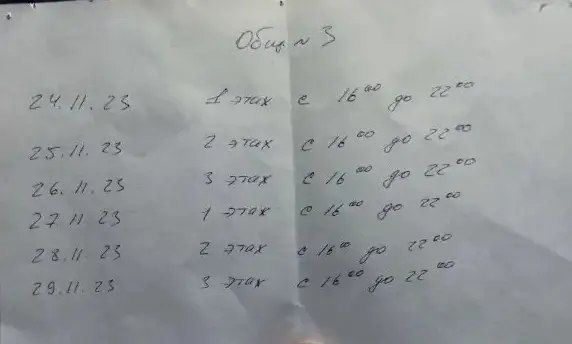 Общ № 3
24.11.23 1 этаж с 16⁰⁰ до 22⁰⁰
25.11.23 2 этаж с 16⁰⁰ до 22⁰⁰
26.11.23 3 этаж с 16⁰⁰ до 22⁰⁰
27.11.23 1 этаж с 16⁰⁰ до 22⁰⁰
28.11.23 2 этаж с 16⁰⁰ до 22⁰⁰
29.11.23 3 этаж с 16⁰⁰ до 22⁰⁰